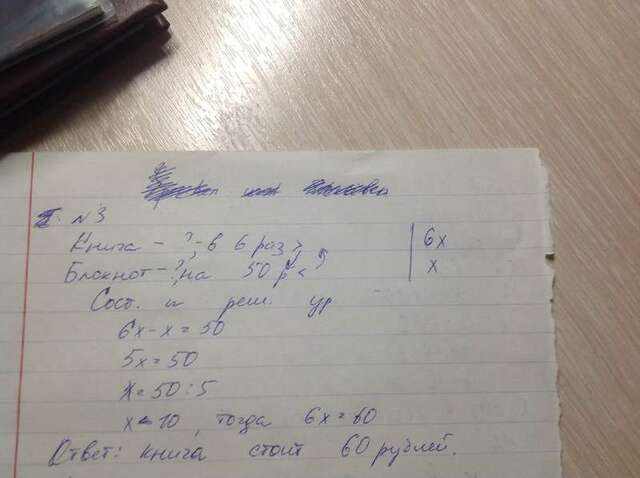 №3
Книга - ?, в 6 раз > 6x
Блокнот - ?, на 50 р < x
Сост. и реш. ур
6x - x = 50
5x = 50
x = 50 : 5
x = 10, тогда 6x = 60
Ответ: книга стоит 60 рублей.